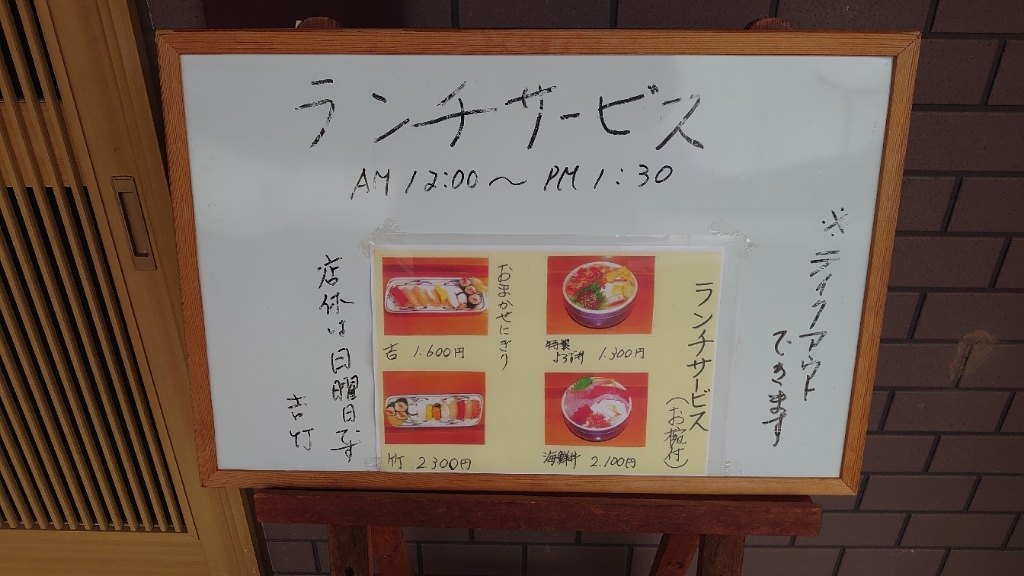 ランチサービス
AM 12:00〜 PM 1:30
※ テイクアウト
できます
ランチサービス
(お椀付)
特製
ちらし丼 1.300円
海鮮丼 2.100円
おまかせにぎり
吉 1.600円
竹 2300円
店休は日曜日です
吉竹